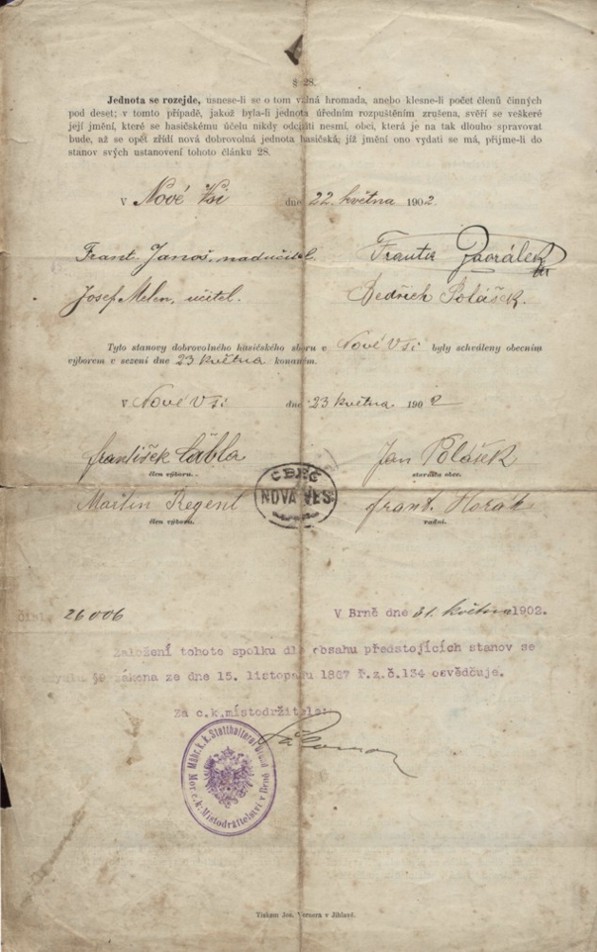 § 28.
Jednota se rozejde, usnese-li se o tom valná hromada, anebo klesne-li počet členů činných
pod deset; v tomto případě, jakož byla-li jednota úředním rozpuštěním zrušena, svěří se veškeré
její jmění, které se hasičskému účelu nikdy odciziti nesmí, obci, která je na tak dlouho spravovat
bude, až se opět zřídí nová dobrovolná jednota hasičská; jíž jmění ono vydati se má, přijme-li do
stanov svých ustanovení tohoto článku 28.
V Nové Vsi dne 22 května 1902.
Frant. Janoš, nadučitel. Frant.
Josef Melen, učitel. Bedřich Polášek.
Tyto stanovy dobrovolného hasičského sboru v Nové Vsi byly schváleny obecním
výborem v sezení dne 23 května konaném.
V Nové Vsi dne 23 května 1902
František Jan Polášek
člen výboru. starosta obce.
Martin Regent Frant. Horák
člen výboru. radní.
OBEC
NOVÁ VES
čís. 26006 V Brně dne 31. května 1902.
Založení tohoto spolku dle obsahu předstojících stanov se
§9 zákona ze dne 15. listopadu 1867 ř.z.č.134 osvědčuje.
Za c.k.místodržitele:
Mähr. k. k. Statthalterei Brünn
Mor. c. k. Místodržitelství v Brně
Tiskem Jos. Wernera v Jihlavě.